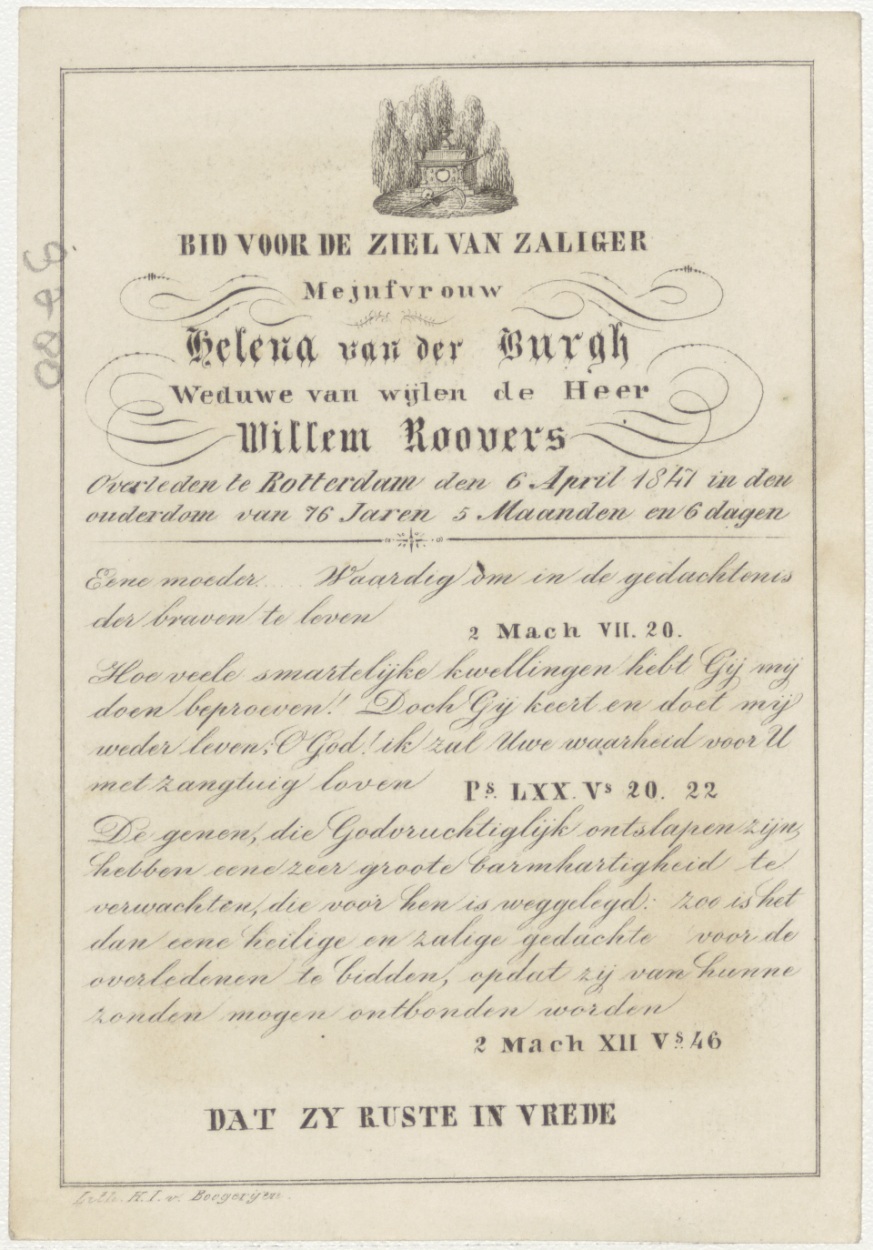 BID VOOR DE ZIEL VAN ZALIGER
Mejufvrouw
Helena van der Burgh
Weduwe van wijlen de Heer
Willem Roovers
Overleden te Rotterdam den 6 April 1847 in den
ouderdom van 76 Jaren 5 Maanden en 6 dagen
Eene moeder .... Waardig om in de gedachtenis
der braven te leven
2 Mach VII. 20.
Hoe veele smartelijke kwellingen hebt Gij mij
doen beproeven! Doch Gij keert en doet mij
weder leven; O God! ik zal Uwe waarheid voor U
met zangtuig loven
Ps. LXX. Vs 20. 22
De genen, die Godvruchtiglijk ontslapen zijn,
hebben eene zeer groote barmhartigheid te
verwachten, die voor hen is weggelegd: zoo is het
dan eene heilige en zalige gedachte voor de
overledenen te bidden, opdat zij van hunne
zonden mogen ontbonden worden
2 Mach XII Vs. 46
DAT ZY RUSTE IN VREDE
Lith. H. I. v.